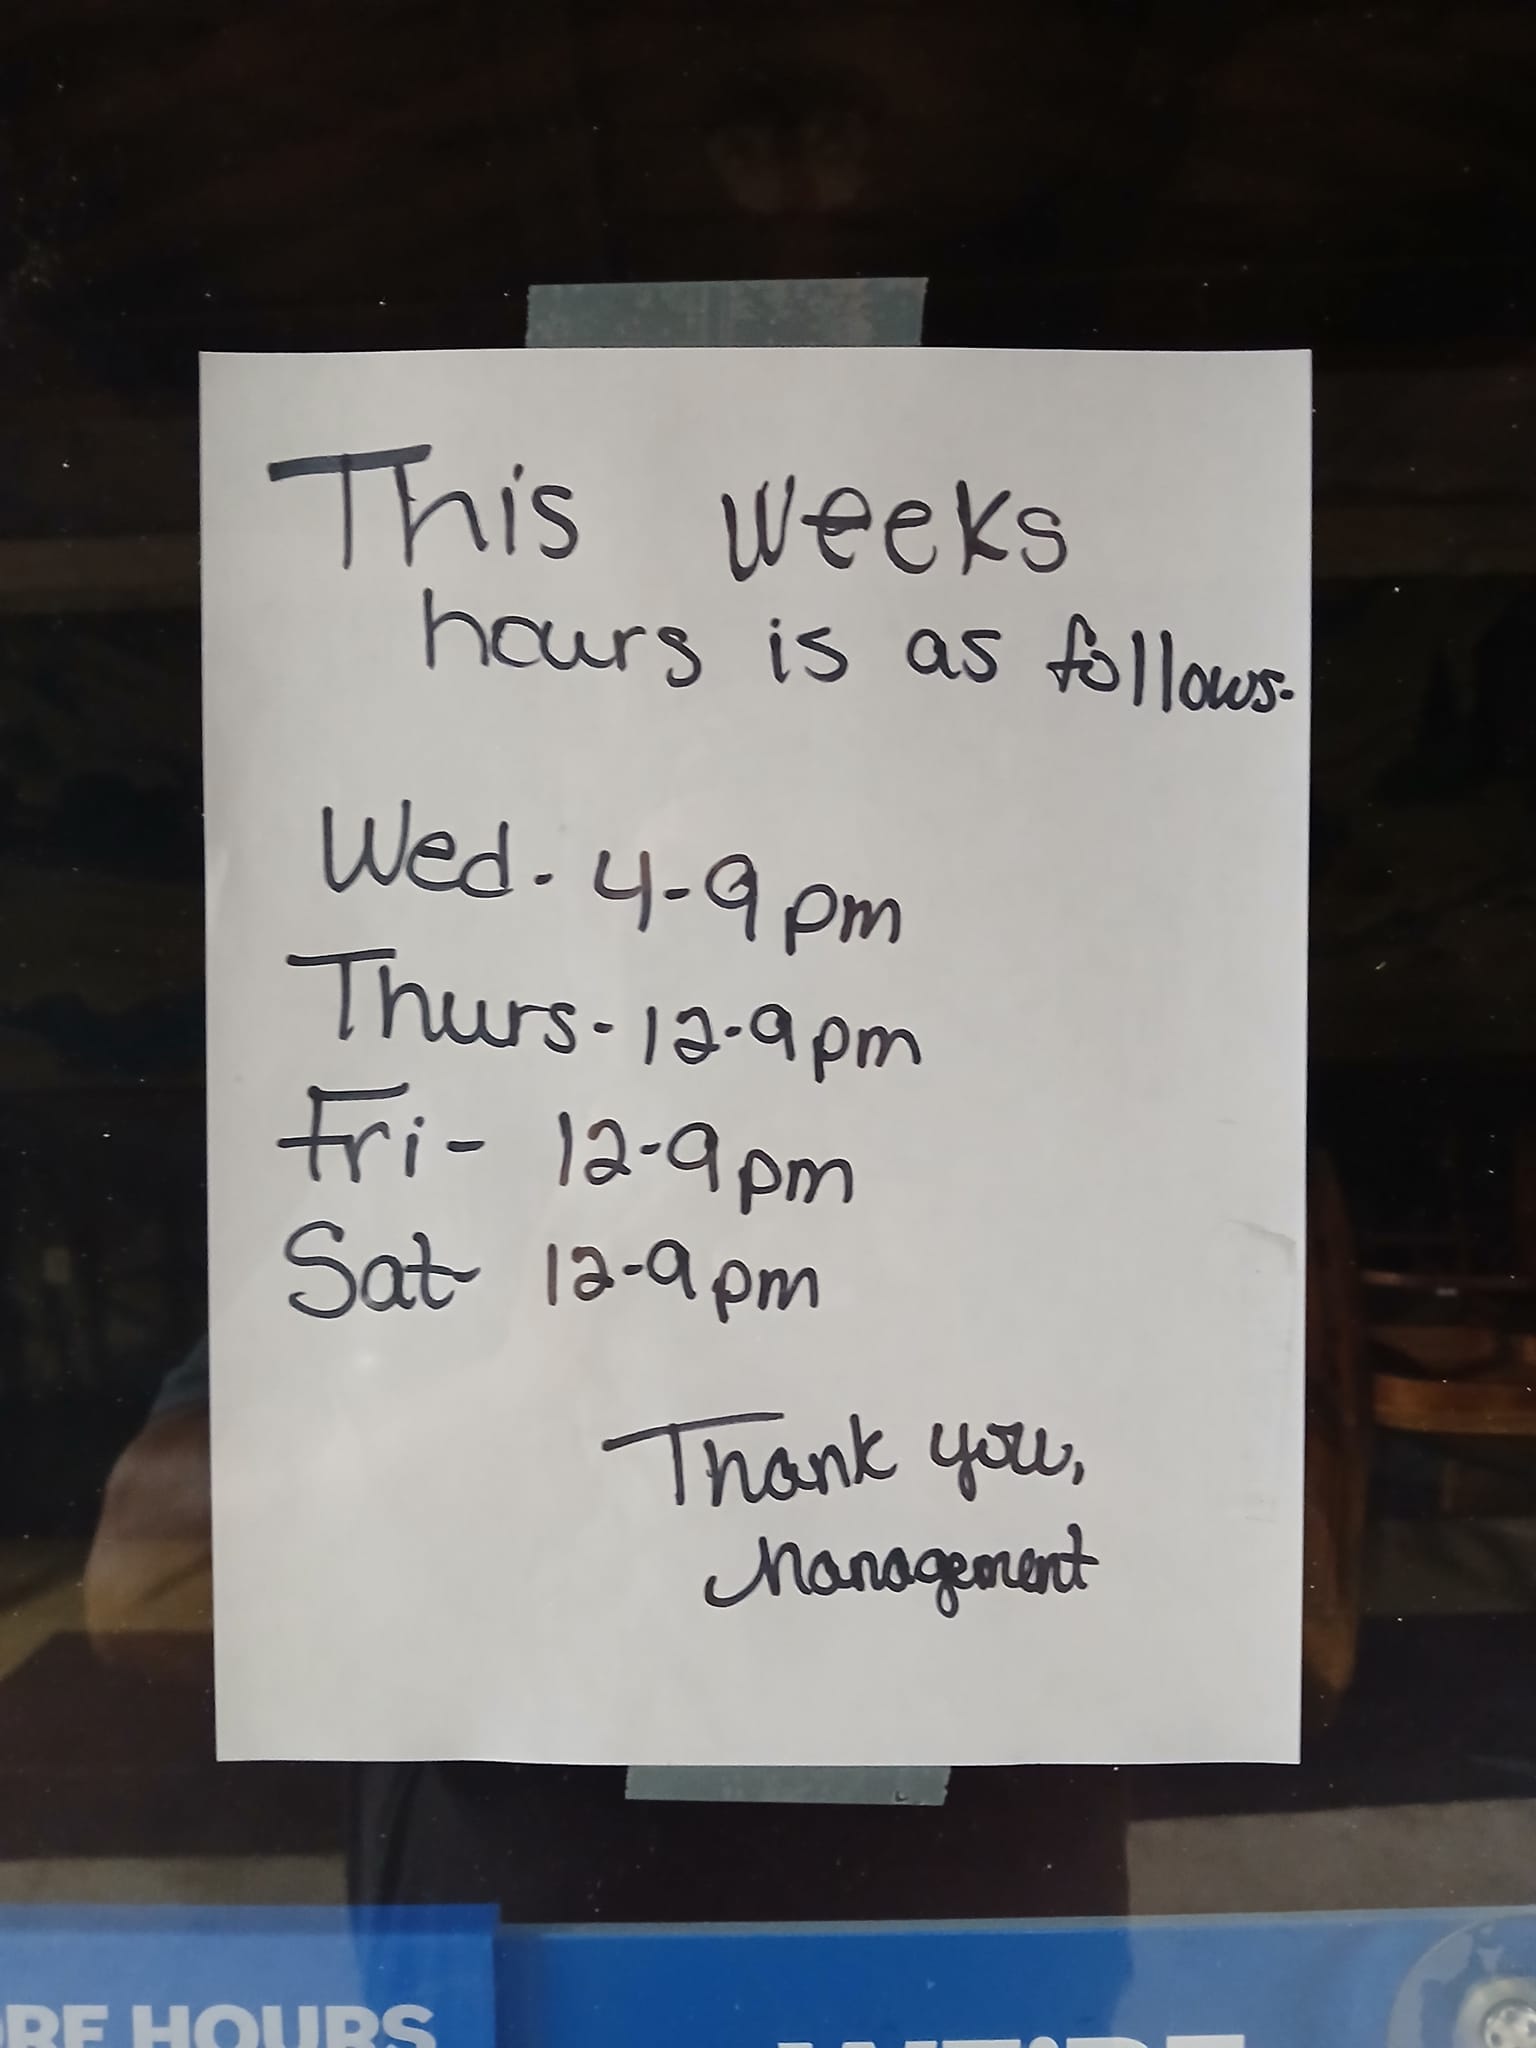 This weeks
hours is as follows.
Wed. 4-9pm
Thurs-12-9pm
Fri- 12-9pm
Sat- 12-9pm
Thank you,
Management
HOURS